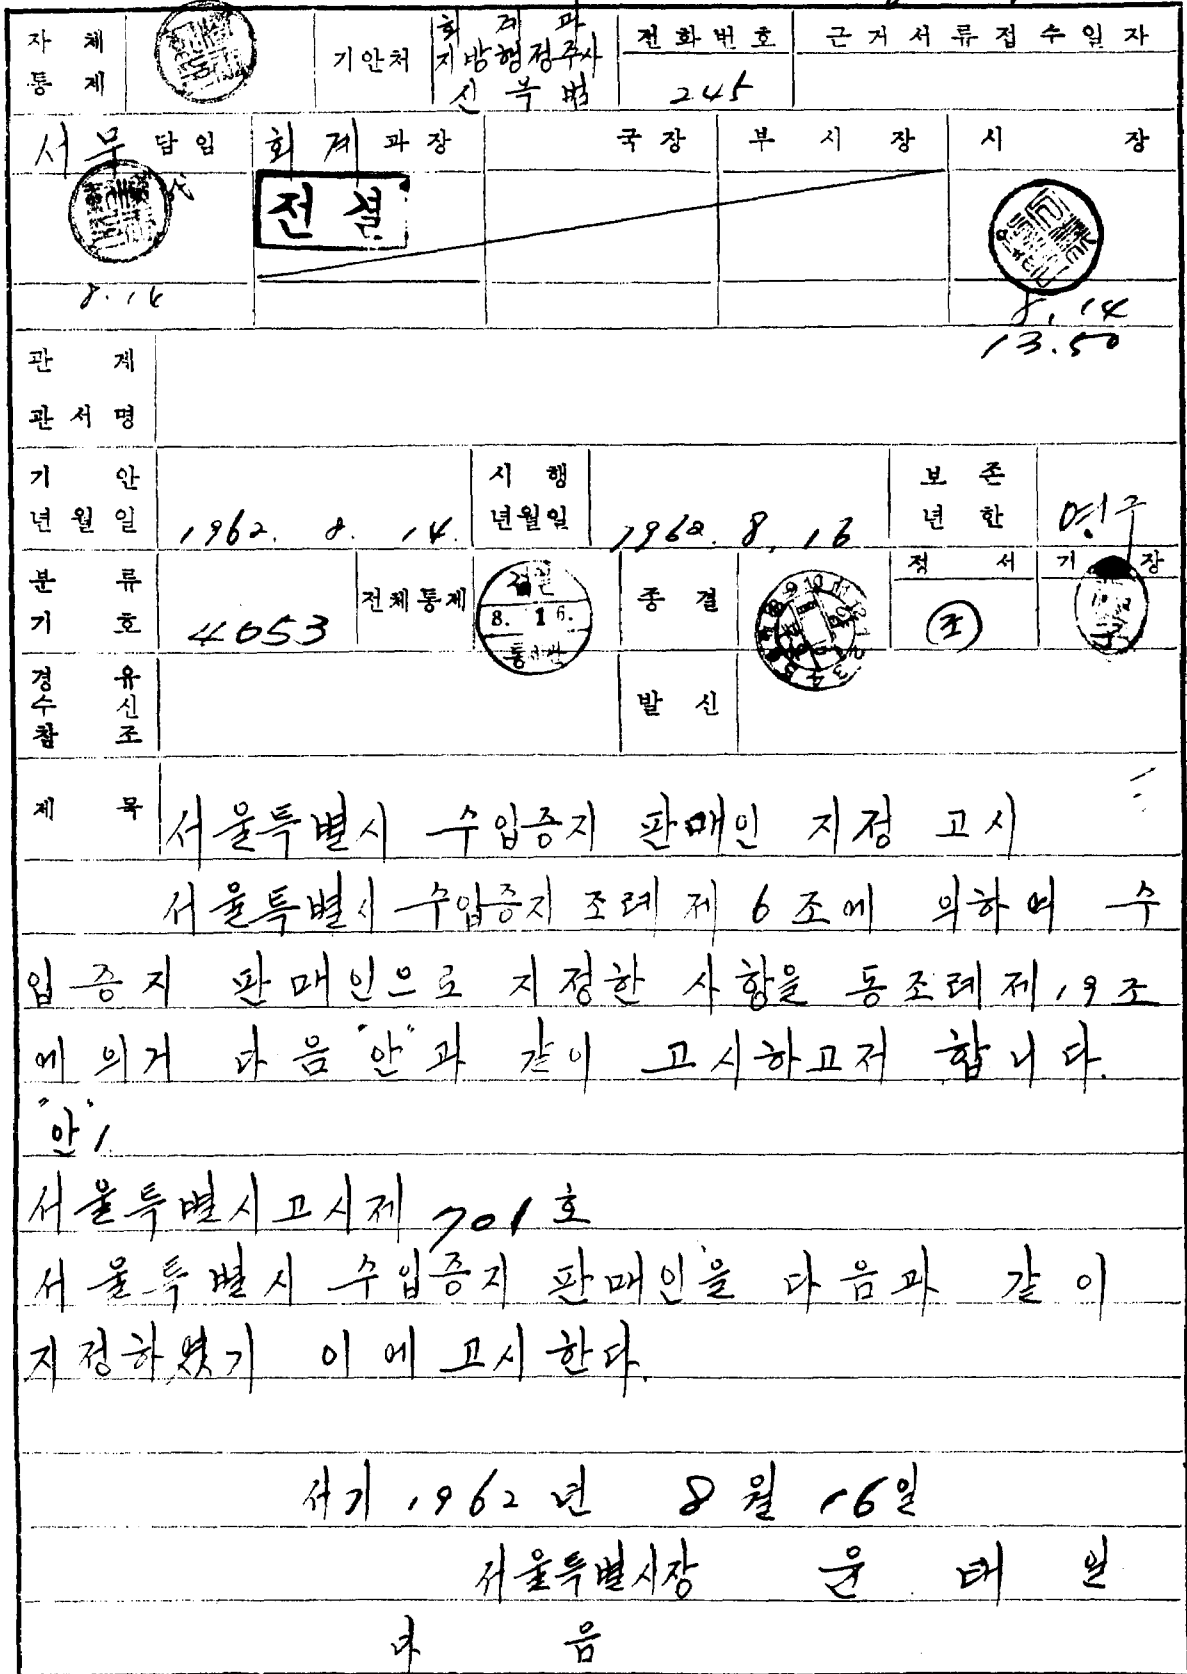 자체통제
기안처
회계과
지방행정주사
신북범
전화번호
245
근거서류접수일자
서무 담임
회계과장
국장
부시장
시장
代
전결
8.14
8.14
13.50
관계
관서명
기안
년월일
1962. 8. 14.
시행
년월일
1962. 8. 16
보존
년한
영구
분류
기호
4053
전체통제
8. 16.
종결
정서
기장
경유
수신
참조
발신
제목
서울특별시 수입증지 판매인 지정 고시
서울특별시 수입증지 조례 제 6 조에 의하여 수
입증지 판매인으로 지정한 사항을 동조례 제19조
에 의거 다음 "안"과 같이 고시하고저 합니다.
"안" 1
서울특별시고시제 701 호
서울특별시 수입증지 판매인을 다음과 같이
지정하였기 이에 고시한다.
서기 1962 년 8 월 16 일
서울특별시장 윤태일
다음